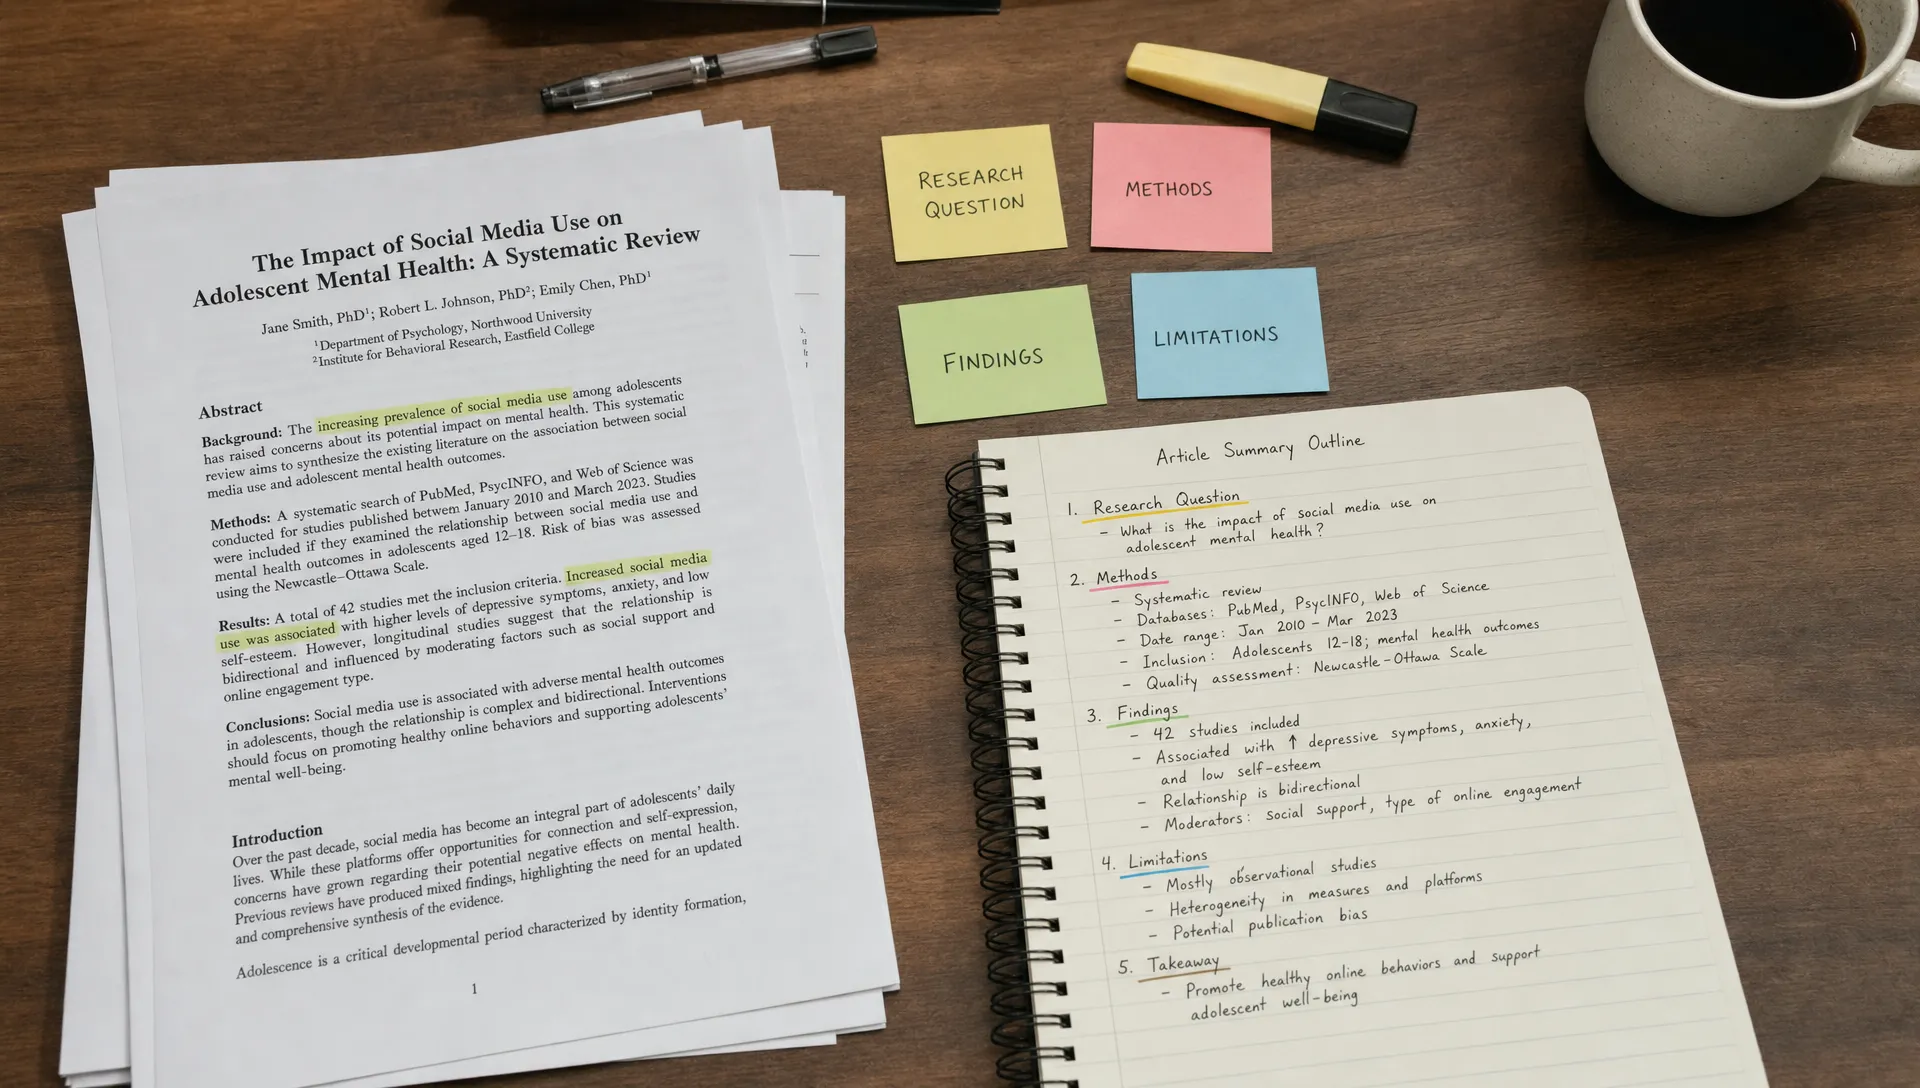 The Impact of Social Media Use on
Adolescent Mental Health: A Systematic Review
Jane Smith, PhD¹; Robert L. Johnson, PhD²; Emily Chen, PhD¹
¹Department of Psychology, Northwood University
²Institute for Behavioral Research, Eastfield College
Abstract
Background: The increasing prevalence of social media use among adolescents
has raised concerns about its potential impact on mental health. This systematic
review aims to synthesize the existing literature on the association between social
media use and adolescent mental health outcomes.
Methods: A systematic search of PubMed, PsycINFO, and Web of Science was
conducted for studies published between January 2010 and March 2023. Studies
were included if they examined the relationship between social media use and
mental health outcomes in adolescents aged 12–18. Risk of bias was assessed
using the Newcastle–Ottawa Scale.
Results: A total of 42 studies met the inclusion criteria. Increased social media
use was associated with higher levels of depressive symptoms, anxiety, and low
self-esteem. However, longitudinal studies suggest that the relationship is
bidirectional and influenced by moderating factors such as social support and
online engagement type.
Conclusions: Social media use is associated with adverse mental health outcomes
in adolescents, though the relationship is complex and bidirectional. Interventions
should focus on promoting healthy online behaviors and supporting adolescents'
mental well-being.
Introduction
Over the past decade, social media has become an integral part of adolescents' daily
lives. While these platforms offer opportunities for connection and self-expression,
concerns have grown regarding their potential negative effects on mental health.
Previous reviews have produced mixed findings, highlighting the need for an updated
and comprehensive synthesis of the evidence.
Adolescence is a critical developmental period characterized by identity formation,
1
RESEARCH
QUESTION
METHODS
FINDINGS
LIMITATIONS
Article Summary Outline
1. Research Question
– What is the impact of social media use on
adolescent mental health?
2. Methods
– Systematic review
– Databases: PubMed, PsycINFO, Web of Science
– Date range: Jan 2010 – Mar 2023
– Inclusion: Adolescents 12-18; mental health outcomes
– Quality assessment: Newcastle-Ottawa Scale
3. Findings
– 42 studies included
– Associated with ↑ depressive symptoms, anxiety,
and low self-esteem
– Relationship is bidirectional
– Moderators: social support, type of online engagement
4. Limitations
– Mostly observational studies
– Heterogeneity in measures and platforms
– Potential publication bias
5. Takeaway
– Promote healthy online behaviors and support
adolescent well-being